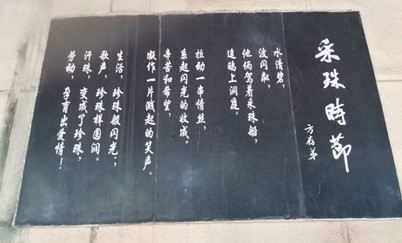 采珠時節
方存弟
水清碧，
波闪粼，
他俩驾着采珠船，
追踏上洞庭。
拉动一串情丝，
系起闪光的收成。
辛苦和希望，
融作一片溅起的笑声。
生活，珍珠般闪光；
歌声，珍珠样圆润。
汗珠，变成了珍珠，
劳动，孕育出爱情！